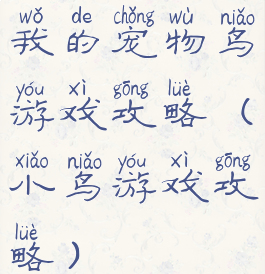 wǒ de chǒng wù niǎo
我的宠物鸟
yóu xì gōng lüè
游戏攻略（
xiǎo niǎo yóu xì gōng
小鸟游戏攻
lüè
略）